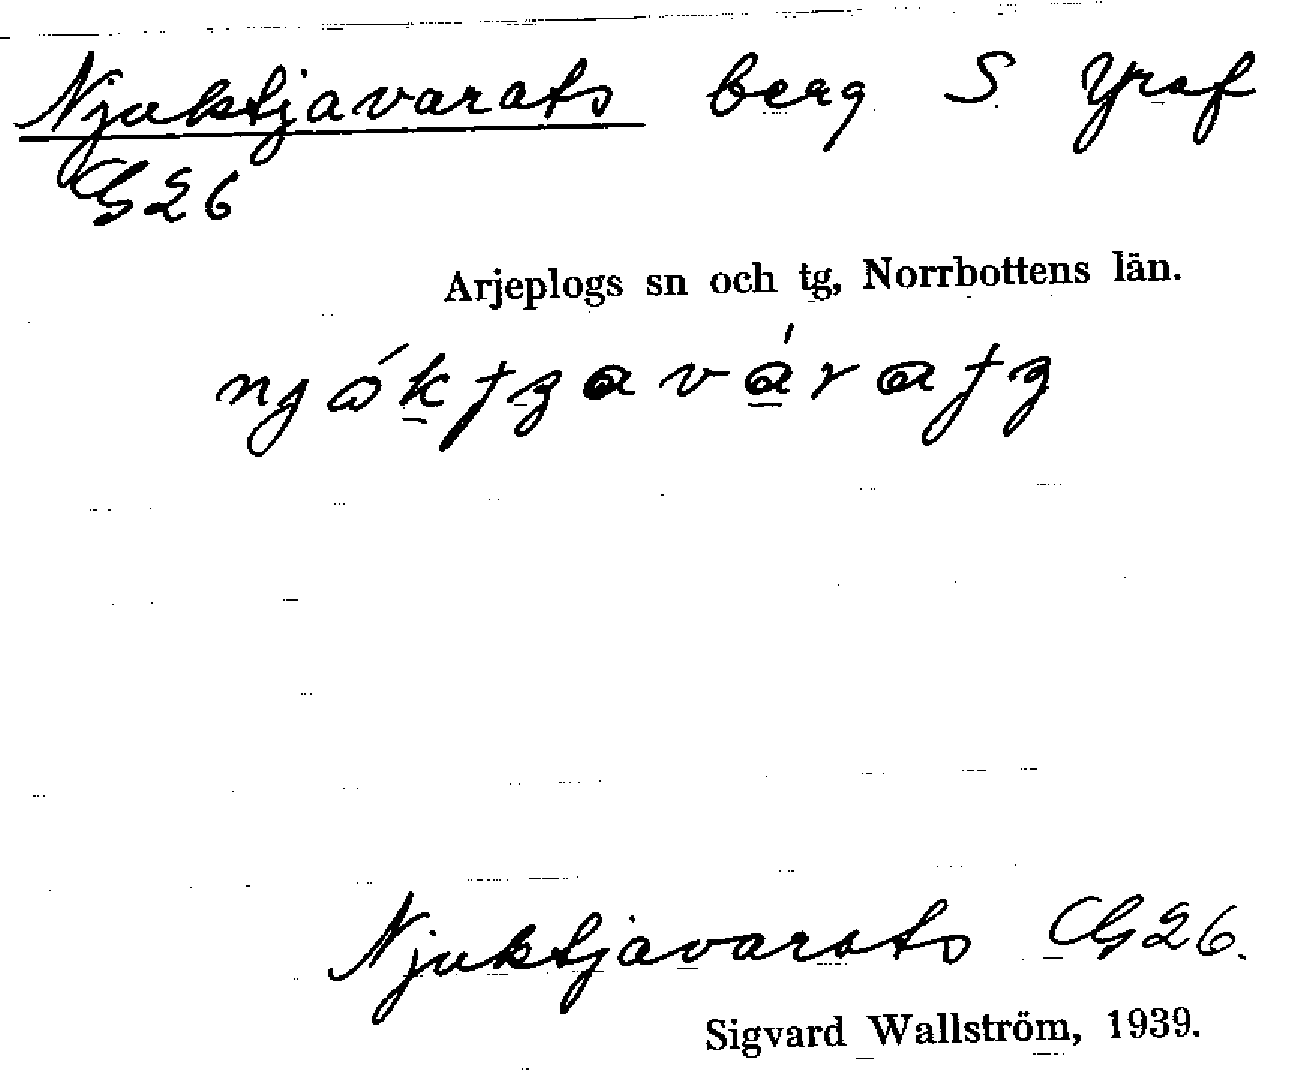 Njuktjavarats berg S Yraf
G26
Arjeplogs sn och tg, Norrbottens län.
Njuktjavarats G26.
Sigvard Wallström, 1939.